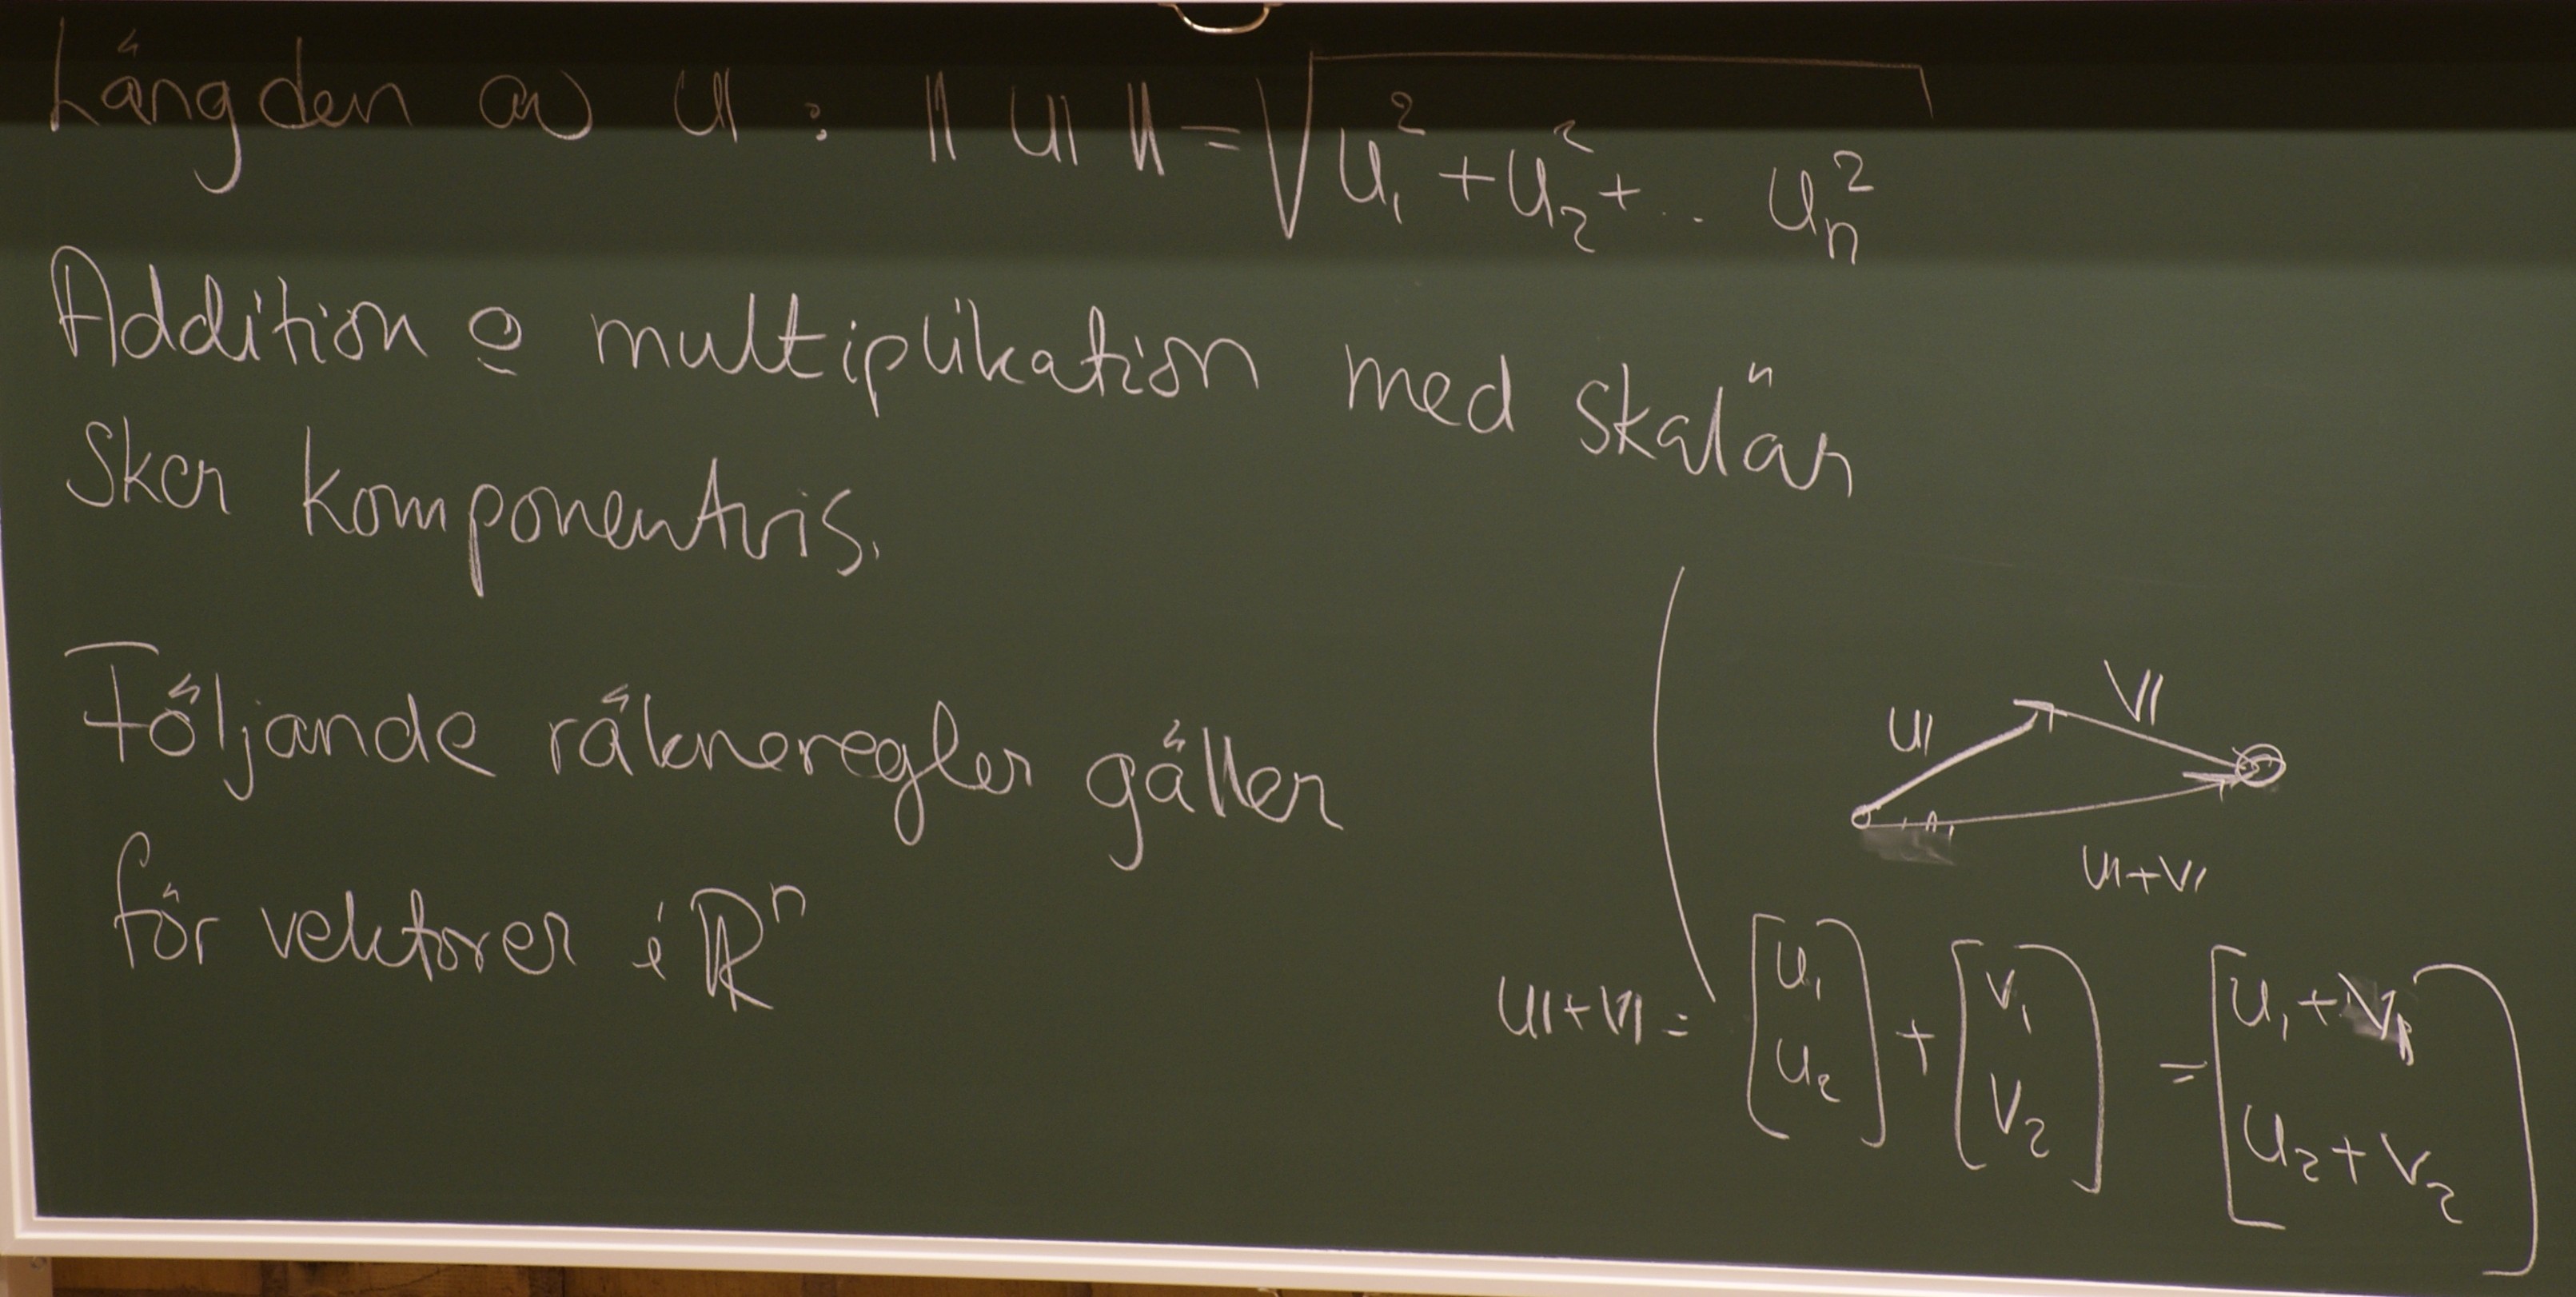 Längden av u : ‖ u ‖ = √(u₁² + u₂² + .. uₙ²)
Addition o multiplikation med skalär
sker komponentvis.
Följande räkneregler gäller
för vektorer i ℝⁿ
u
v
u+v
u+v = [u₁ u₂] + [v₁ v₂] = [u₁+v₁ u₂+v₂]